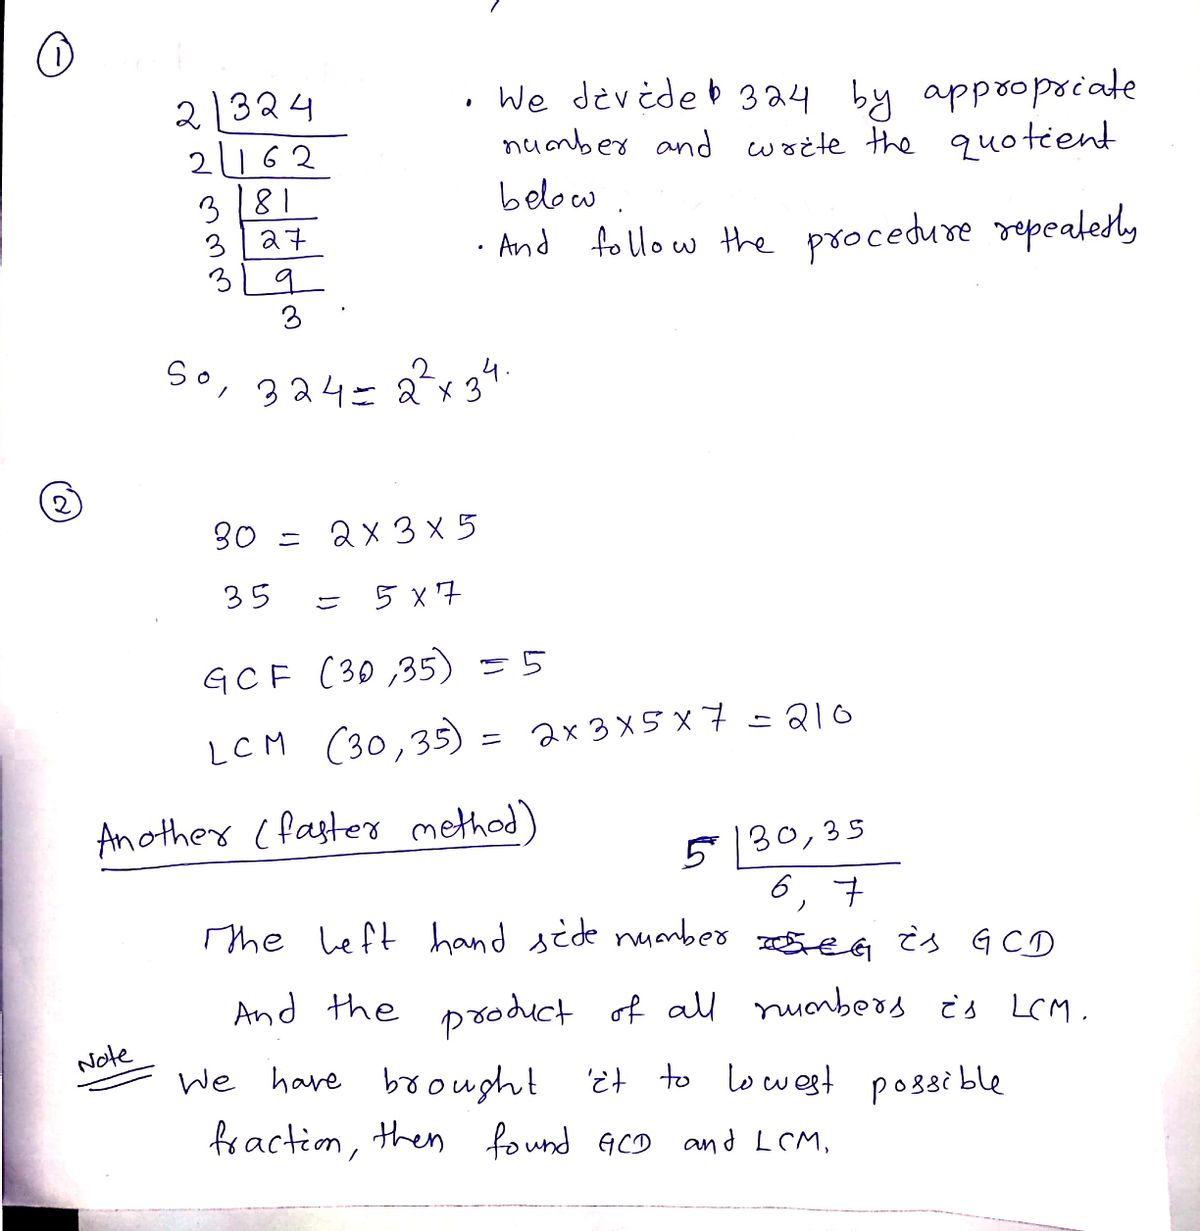 ①
2 | 324
2 | 162
3 | 81
3 | 27
3 | 9
3
• We divide 324 by appropriate
number and write the quotient
below.
• And follow the procedure repeatedly
So, 324 = 2² x 3⁴.
②
30 = 2 x 3 x 5
35 = 5 x 7
GCF (30,35) = 5
LCM (30,35) = 2 x 3 x 5 x 7 = 210
Another (faster method)
5 | 30, 35
6, 7
The left hand side number is GCD
And the product of all numbers is LCM.
Note
We have brought it to lowest possible
fraction, then found GCD and LCM.